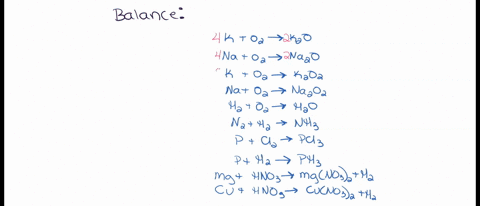 Balance:
4K + O₂ → 2K₂O
4Na + O₂ → 2Na₂O
K + O₂ → K₂O₂
Na + O₂ → Na₂O₂
H₂ + O₂ → H₂O
N₂ + H₂ → NH₃
P + Cl₂ → PCl₃
P + H₂ → PH₃
Mg + HNO₃ → Mg(NO₃)₂ + H₂
Cu + HNO₃ → Cu(NO₃)₂ + H₂